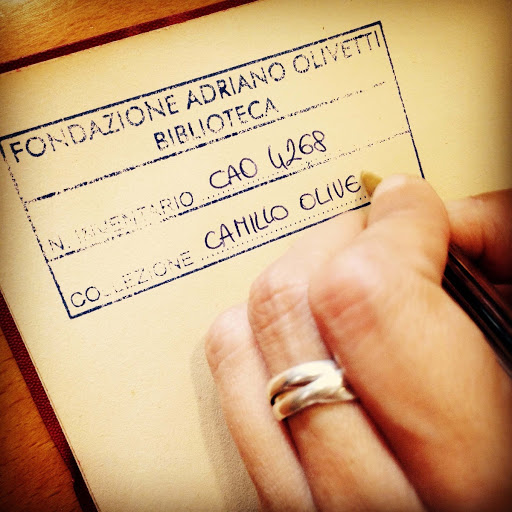 FONDAZIONE ADRIANO OLIVETTI
BIBLIOTECA
N. INVENTARIO CAO 4268
COLLEZIONE CAMILLO OLIVE